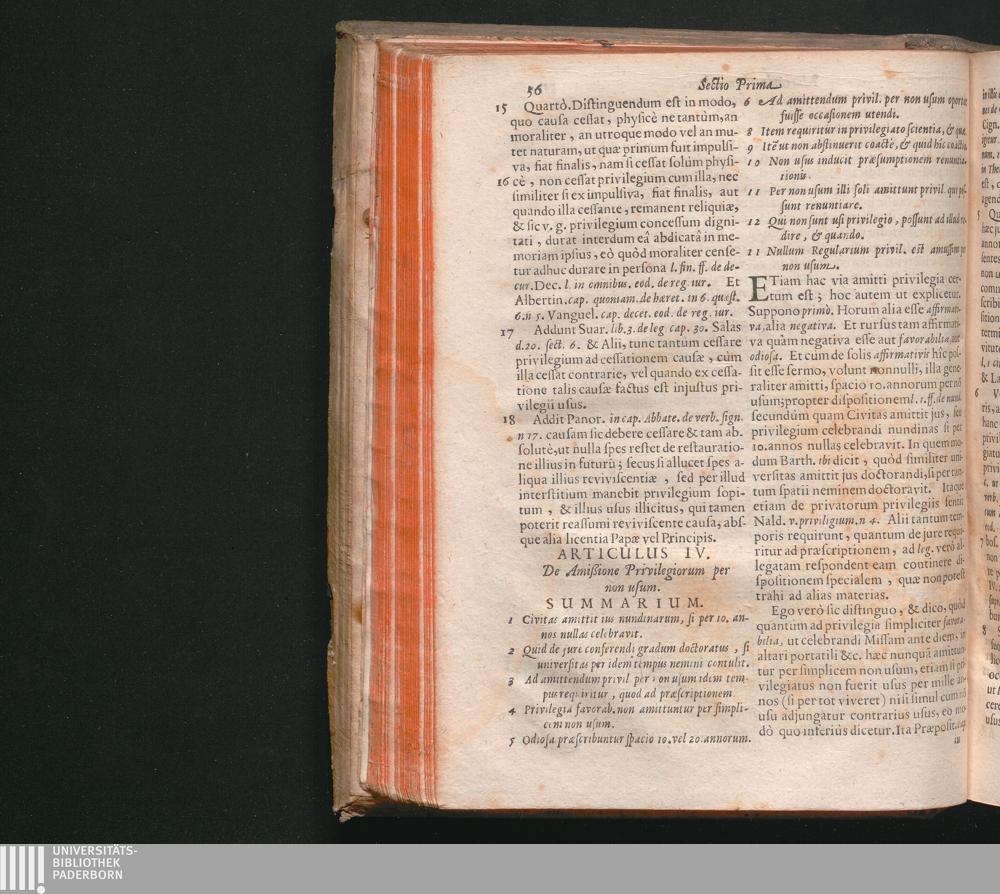 56
Sectio Prima
15 Quartò. Distinguendum est in modo,
quo causa cessat, physicè ne tantùm, an
moraliter, an utroque modo vel an mu-
tet naturam, ut quæ primum fuit impulsi-
va, fiat finalis, nam si cessat solùm physi-
16 cè, non cessat privilegium cum illa, nec
similiter si ex impulsiva, fiat finalis, aut
quando illa cessante, remanent reliquiæ,
& sic v. g. privilegium concessum digni-
tati, durat interdum eâ abdicatâ in me-
moriam ipsius, eò quòd moraliter cense-
tur adhuc durare in persona l. fin. ff. de de-
cur. Dec. l. in omnibus. eod. de reg. iur. Et
Albertin. cap. quoniam. de hæret. in 6. quæst.
6. n 5. Vanguel. cap. decet. eod. de reg. iur.
17 Addunt Suar. lib. 3. de leg cap. 30. Salas
d. 20. sect. 6. & Alii, tunc tantùm cessare
privilegium ad cessationem causæ, cùm
illa cessat contrarie, vel quando ex cessa-
tione talis causæ factus est injustus pri-
vilegii usus.
18 Addit Panor. in cap. Abbate. de verb. sign.
n 17. causam sic debere cessare & tam ab-
solutè, ut nulla spes restet de restauratio-
ne illius in futurū; secus si allucet spes a-
liqua illius reviviscentiæ, sed per illud
interstitium manebit privilegium sopi-
tum, & illius usus illicitus, qui tamen
poterit reassumi reviviscente causa, abs-
que alia licentia Papæ vel Principis.
ARTICULUS IV.
De Amißione Privilegiorum per
non usum.
SUMMARIUM.
1 Civitas amittit ius nundinarum, si per 10. an-
nos nullas celebravit.
2 Quid de jure conferendi gradum doctoratus, si
universitas per idem tempus nemini contulit.
3 Ad amittendum privil per non usum idem tem-
pus requiritur, quod ad præscriptionem
4 Privilegia favorab. non amittuntur per simpli-
cem non usum.
5 Odiosa præscribuntur spacio 10. vel 20. annorum.
6 Ad amittendum privil. per non usum oportet
fuisse occasionem utendi.
8 Item requiritur in privilegiato scientia, & quæ.
9 Itē ut non abstinuerit coactè, & quid hîc coactio.
10 Non usus inducit præsumptionem renuntia-
tionis.
11 Per non usum illi soli amittunt privil. qui pos-
sunt renuntiare.
12 Qui non sunt usi privilegio, possunt ad illud re-
dire, & quando.
11 Nullum Regularium privil. est amussum per
non usum.
ETiam hac via amitti privilegia cer-
tum est; hoc autem ut explicetur.
Suppono primò. Horum alia esse affirmati-
va, alia negativa. Et rursus tam affirmati-
va quàm negativa esse aut favorabilia, aut
odiosa. Et cùm de solis affirmativis hîc pos-
sit esse sermo, volunt nonnulli, illa gene-
raliter amitti, spacio 10. annorum per nō
usum; propter dispositionem l. 1. ff. de nund.
secundùm quam Civitas amittit jus, seu
privilegium celebrandi nundinas si per
10. annos nullas celebravit. In quem mo-
dum Barth. ibi dicit, quòd similiter uni-
versitas amittit jus doctorandi, si per tan-
tum spatii neminem doctoravit. Itaque
etiam de privatorum privilegiis sentit
Nald. v. priviligium. n 4. Alii tantum tem-
poris requirunt, quantum de jure requi-
ritur ad præscriptionem, ad leg. verò al-
legatam respondent eam continere di-
spositionem specialem, quæ non potest
trahi ad alias materias.
Ego verò sic distinguo, & dico, quòd
quantùm ad privilegia simpliciter favora-
bilia, ut celebrandi Missam ante diem, in
altari portatili &c. hæc nunquā amittun-
tur per simplicem non usum, etiam si pri-
vilegiatus non fuerit usus per mille an-
nos (si per tot viveret) nisi simul cum nō
usu adjungatur contrarius usus, eo mo-
dò quo inferiùs dicetur. Ita Præposit.
in
UNIVERSITÄTS-
BIBLIOTHEK
PADERBORN